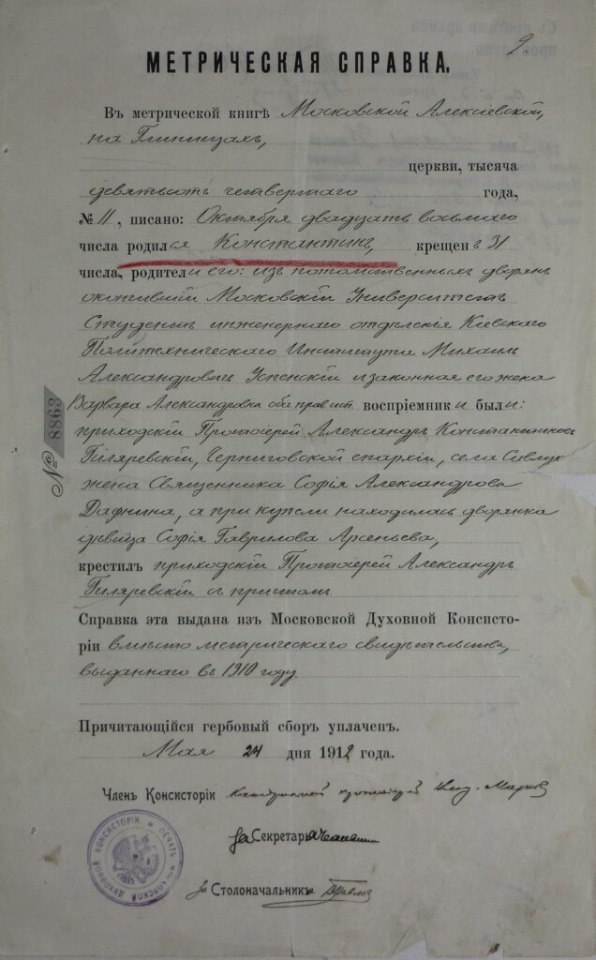 9
МЕТРИЧЕСКАЯ СПРАВКА.
Въ метрической книгѣ Московской Алексѣевской,
на Глинищахъ,
церкви, тысяча
девятьсотъ четвертаго года,
№ 11, писано: Октября двадцать восьмаго
числа родился Константинъ, крещен в 31
числа, родители его: изъ потомственныхъ дворянъ
окончившій Московскій Университетъ
Студентъ инженернаго отдѣленія Кіевскаго
Политехническаго Института Михаилъ
Александровичъ Успенскій и законная его жена
Варвара Александровна оба правосл воспріемники были:
приходскій Протоіерей Александръ Константиновъ
Гиляревскій, Черниговской епархіи, села
жена Священника Софія Александрова
а при купели находилась дворянка
дѣвица Софія Гаврилова Арсеньева,
крестилъ приходскій Протоіерей Александръ
Гиляревскій съ причтомъ
Справка эта выдана изъ Московской Духовной Консисто-
ріи вмѣсто метрическаго свидѣтельства,
выданнаго въ 1910 году.
Причитающійся гербовый сборъ уплаченъ.
Мая 24 дня 1912 года.
Членъ Консисторіи
За Секретарь
За Столоначальникъ
№ 8863